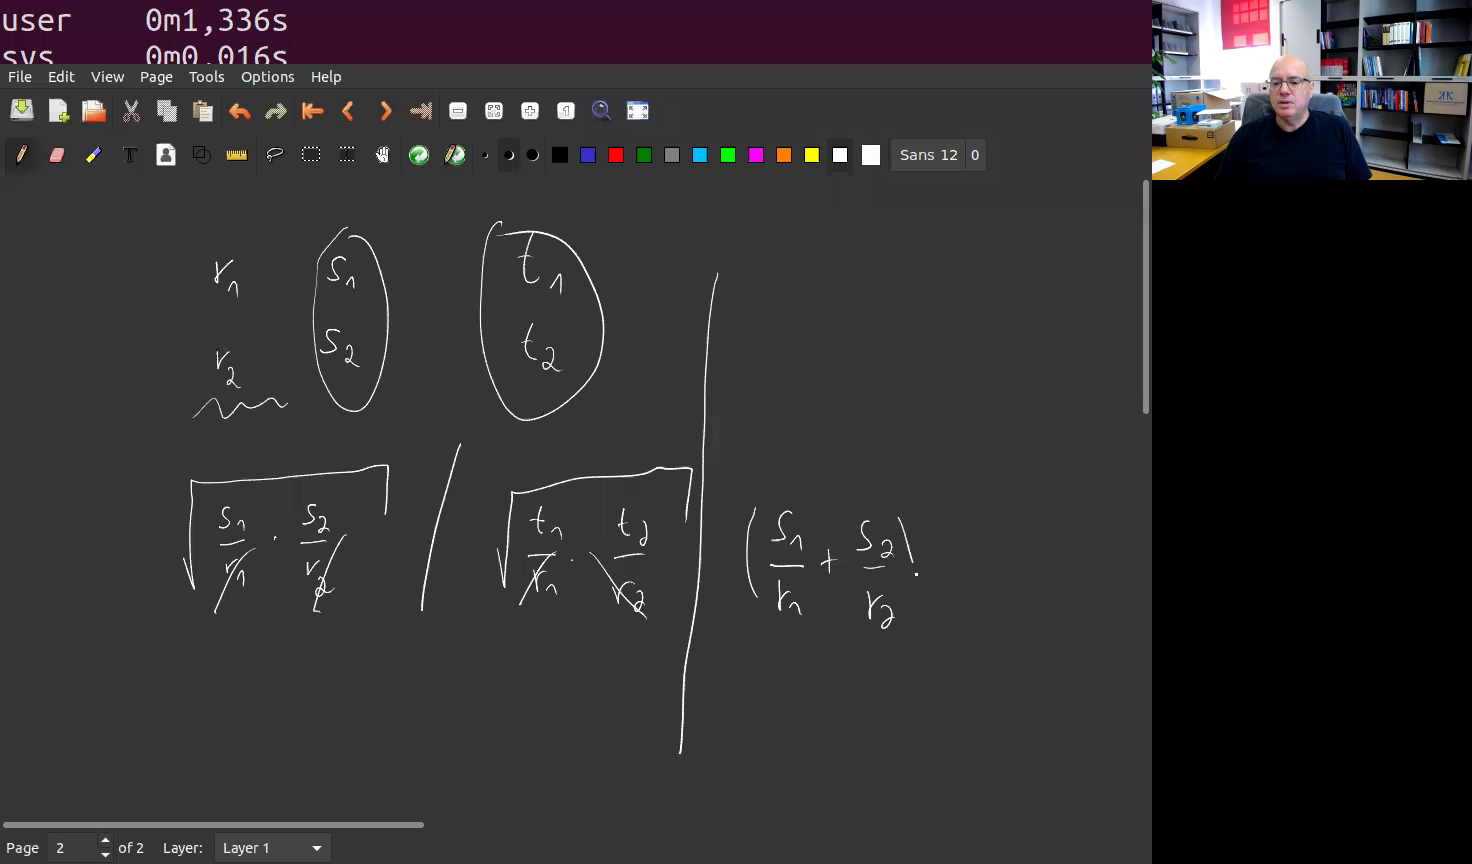 user 0m1,336s
sys 0m0,016s
File Edit View Page Tools Options Help
Sans 12 0
r1 s1 t1
r2 s2 t2
√(s1/r1 · s2/r2) / √(t1/r1 · t2/r2) | (s1/r1 + s2/r2) ·
Page 2 of 2 Layer: Layer 1